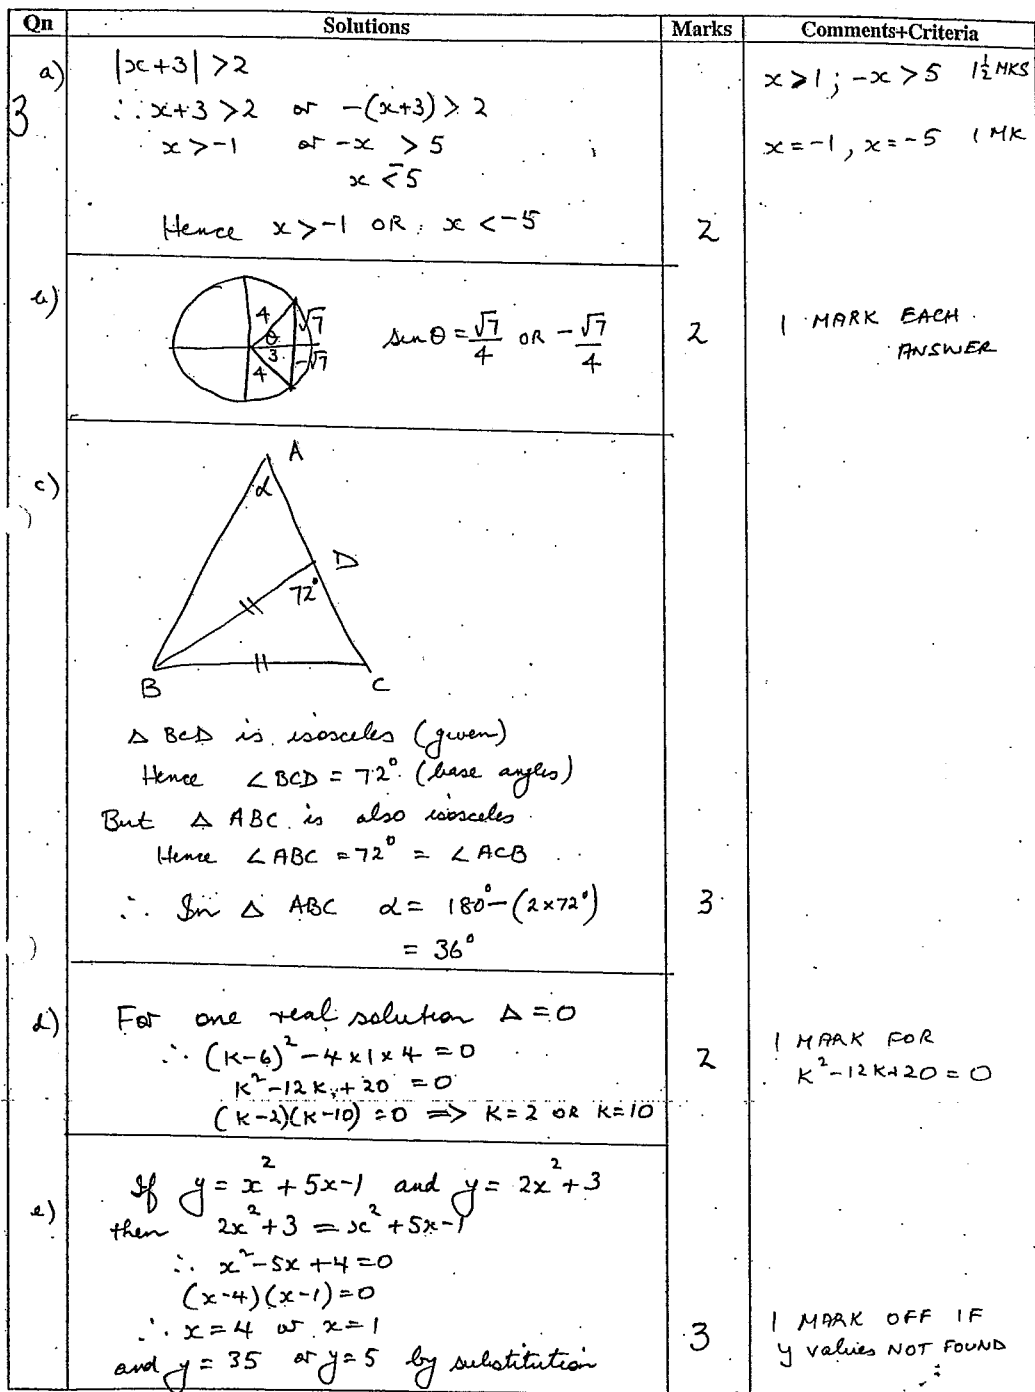 Qn Solutions Marks Comments+Criteria
3
a) |x+3| >2
∴ x+3 >2 or -(x+3) > 2
x>-1 or -x > 5
x < -5
Hence x>-1 OR x <-5
2
x>1; -x>5 1½ MKS
x=-1, x=-5 1 MK
b)
4 √7
θ
3
4 -√7
sin θ = √7/4 OR -√7/4
2
1 MARK EACH
ANSWER
c)
A
α
D
72°
B C
Δ BCD is isosceles (given)
Hence ∠BCD = 72° (base angles)
But Δ ABC is also isosceles
Hence ∠ABC = 72° = ∠ACB
∴ In Δ ABC α = 180° - (2×72°)
= 36°
3
d) For one real solution Δ = 0
∴ (K-6)² - 4×1×4 = 0
K² - 12K + 20 = 0
(K-2)(K-10) = 0 => K=2 OR K=10
2
1 MARK FOR
K²-12K+20=0
e) If y = x² + 5x-1 and y = 2x² + 3
then 2x² + 3 = x² + 5x-1
∴ x² - 5x + 4 = 0
(x-4)(x-1) = 0
∴ x=4 or x=1
and y = 35 or y=5 by substitution
3
1 MARK OFF IF
y values NOT FOUND